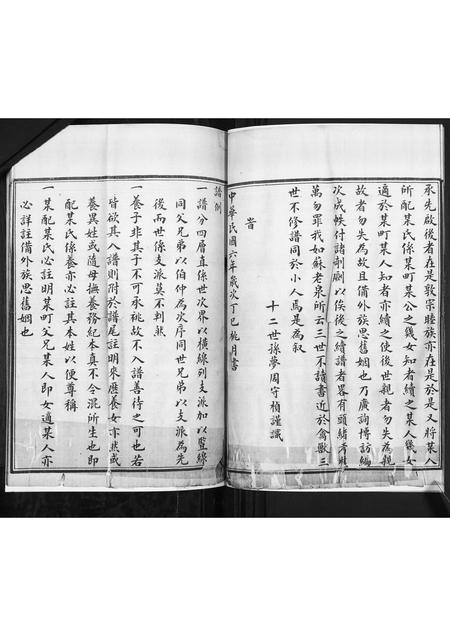 承先啟後者在是敦宗睦族亦在是於是又將某人
所配某氏係某町某公之幾女知者續之某人幾女
適於某町某人知者亦續之使後世親者勿失為親
故者勿失為故且備外族思舊姻也乃廣詢博訪編
次成帙付諸剞劂以俟後之續譜者畧有頭緒考
萬勿罪我如蘇老泉所云三世不讀書近於禽獸三
世不修譜同於小人焉是為叙
十二世孫夢周守楨謹識
旹
中華民國六年歲次丁巳桃月書
譜例
一譜分四層直係世次界以橫線列支派加以竪線
同父兄弟以伯仲為次序同世兄弟以支派為先
後而世係支派莫不判然
一養子非其子不可承祧故不入譜善待之可也若
皆欲其入譜則附於譜尾註明來歷養女亦然或
養異姓或隨母撫養務紀本真不令混所生也即
配某氏係養亦必註其本姓以便尊稱
一某配某氏必註明某町父兄某人即女適某人亦
必詳註備外族思舊姻也